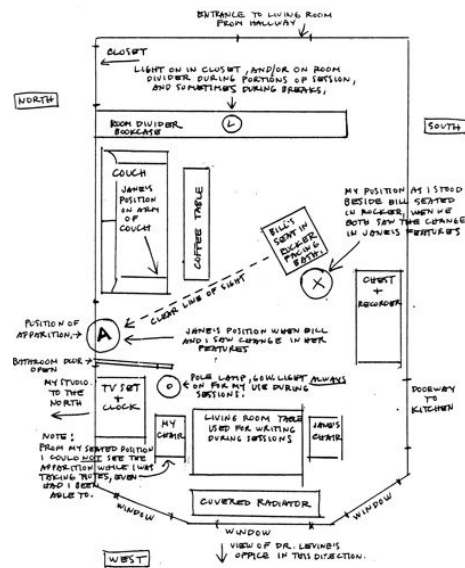 ENTRANCE TO LIVING ROOM
FROM HALLWAY
CLOSET
LIGHT ON IN CLOSET, AND/OR ON ROOM
DIVIDER DURING PORTIONS OF SESSION,
AND SOMETIMES DURING BREAKS.
NORTH
SOUTH
ROOM DIVIDER
BOOKCASE
L
COUCH
JANE'S
POSITION
ON ARM
OF
COUCH
COFFEE TABLE
MY POSITION AS I STOOD
BESIDE BILL SEATED
IN ROCKER, WHEN WE
BOTH SAW THE CHANGE
IN JANE'S FEATURES
BILL'S
SEAT IN
ROCKER
FACING
BATH.
X
CHEST
+
RECORDER
CLEAR LINE OF SIGHT
POSITION OF
APPARITION,
A
JANE'S POSITION WHEN BILL
AND I SAW CHANGE IN HER
FEATURES
BATHROOM DOOR
OPEN
MY STUDIO
TO THE
NORTH
TV SET
+
CLOCK
POLE LAMP, 60W. LIGHT ALWAYS
ON FOR MY USE DURING
SESSIONS.
DOORWAY
TO
KITCHEN
MY
CHAIR
LIVING ROOM TABLE
USED FOR WRITING
DURING SESSIONS
JANE'S
CHAIR
NOTE:
FROM MY SEATED POSITION
I COULD NOT SEE THE
APPARITION WHILE I WAS
TAKING NOTES, EVEN
HAD I BEEN
ABLE TO.
COVERED RADIATOR
WINDOW
WINDOW
WINDOW
WEST
VIEW OF DR. LEVINE'S
OFFICE IN THIS DIRECTION.